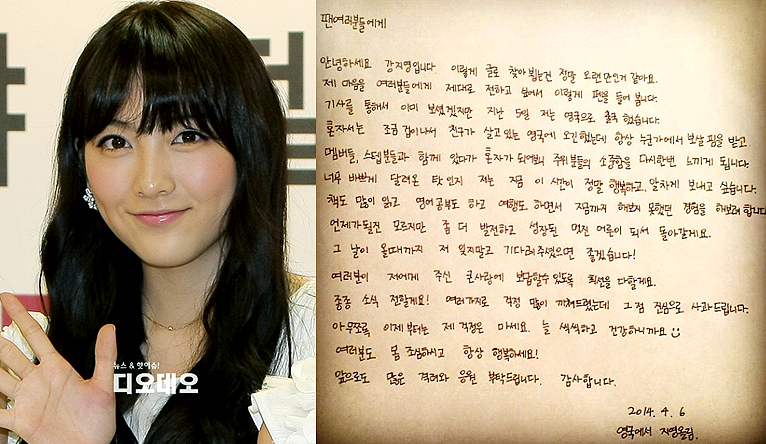 뉴스 & 핫이슈!
디오데오
팬여러분들에게
안녕하세요 강지영입니다. 이렇게 글로 찾아 뵙는건 정말 오랜만인거 같아요.
제 마음을 여러분들에게 제대로 전하고 싶어서 이렇게 펜을 들어 봅니다.
기사를 통해서 이미 보셨겠지만 지난 5일 저는 영국으로 출국 했습니다.
혼자서는 조금 겁이나서 친구가 살고 있는 영국에 오긴했는데 항상 누군가에게 보살핌을 받고,
멤버들, 스텝분들과 함께 있다가 혼자가 되어보니 주위분들의 소중함을 다시한번 느끼게 됩니다.
너무 바쁘게 달려온 탓인지 저는 지금 이 시간이 정말 행복하고, 알차게 보내고 싶습니다.
책도 많이 읽고 영어공부도 하고 여행도 하면서 지금까지 해보지 못했던 경험을 해보려 합니다
언제가될진 모르지만 좀 더 발전하고 성장된 멋진 어른이 되서 돌아갈게요.
그 날이 올때까지 저 잊지말고 기다려주셨으면 좋겠습니다!
여러분이 저에게 주신 큰사랑에 보답할수 있도록 최선을 다할게요.
종종 소식 전할게요! 여러가지로 걱정 많이 끼쳐드렸는데 그 점 진심으로 사과드립니다.
아무쪼록 이제부터는 제 걱정은 마세요. 늘 씩씩하고 건강하니까요
여러분도 몸 조심하시고 항상 행복하세요!
앞으로도 많은 격려와 응원 부탁드립니다. 감사합니다.
2014. 4. 6
영국에서 지영올림.